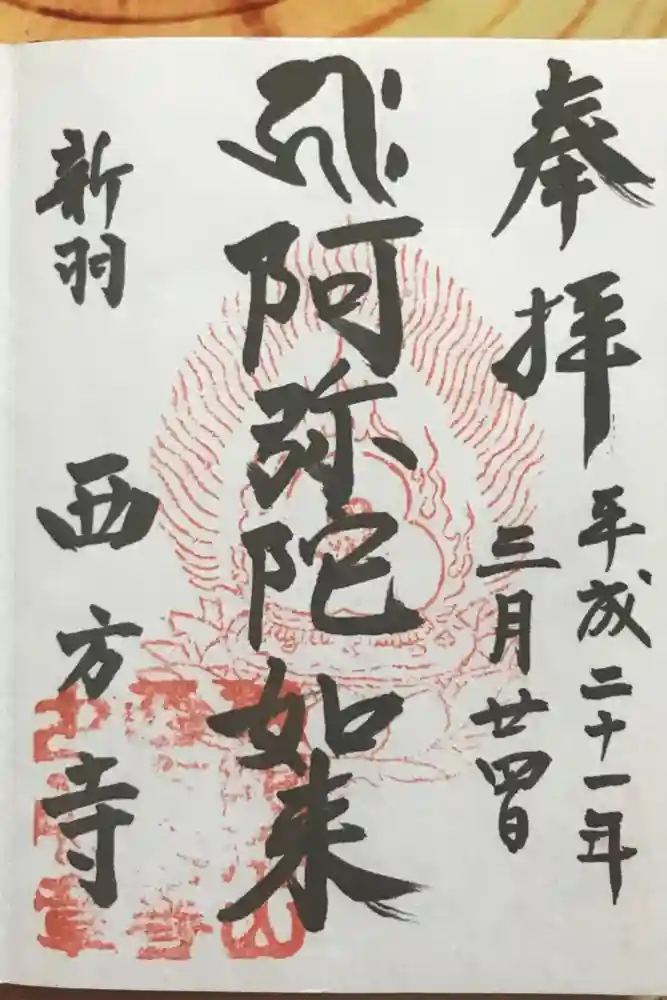 奉拝
平成二十一年
三月廿四日
𑖮𑖿𑖨𑖱𑖾 阿弥陀如来
新羽 西方寺